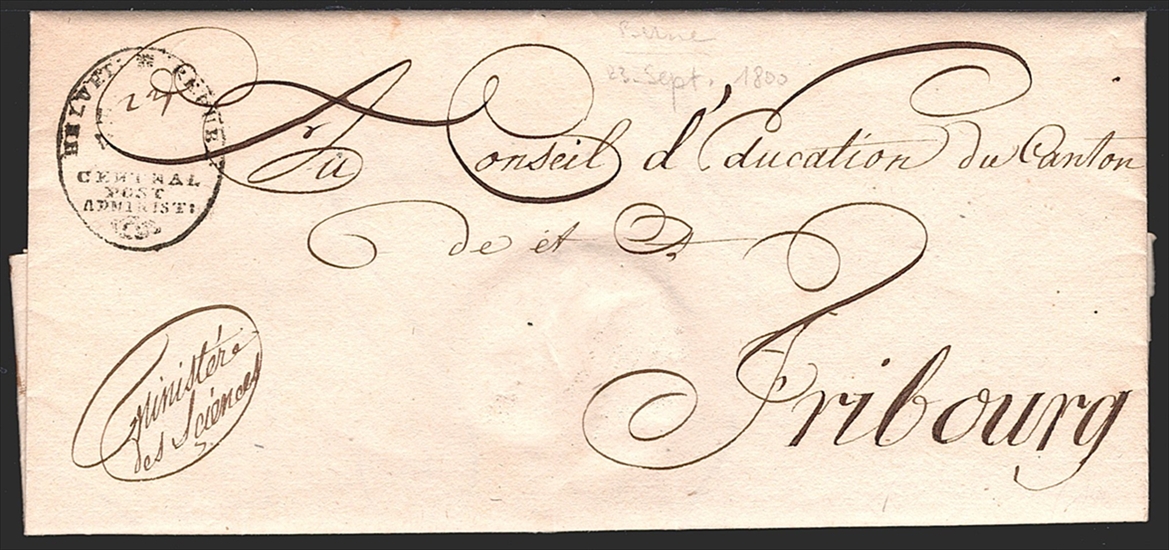 23. Sept. 1800
HELVET:
CENTRAL
POST
ADMINIST:
Au Conseil d'Éducation du Canton
de et à
Fribourg
Ministère
des Sciences